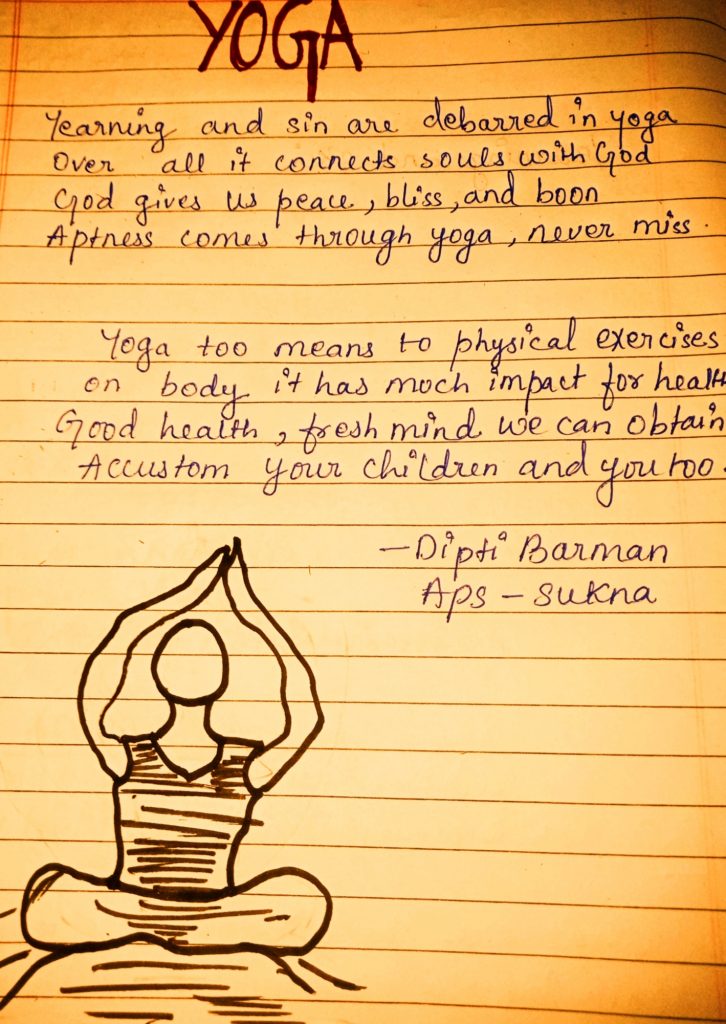 YOGA
Yearning and sin are debarred in yoga
Over all it connects souls with God
God gives us peace, bliss, and boon
Aptness comes through yoga, never miss.
Yoga too means to physical exercises
on body it has much impact for health
Good health, fresh mind we can obtain
Accustom your children and you too.
-Dipti Barman
Aps - Sukna